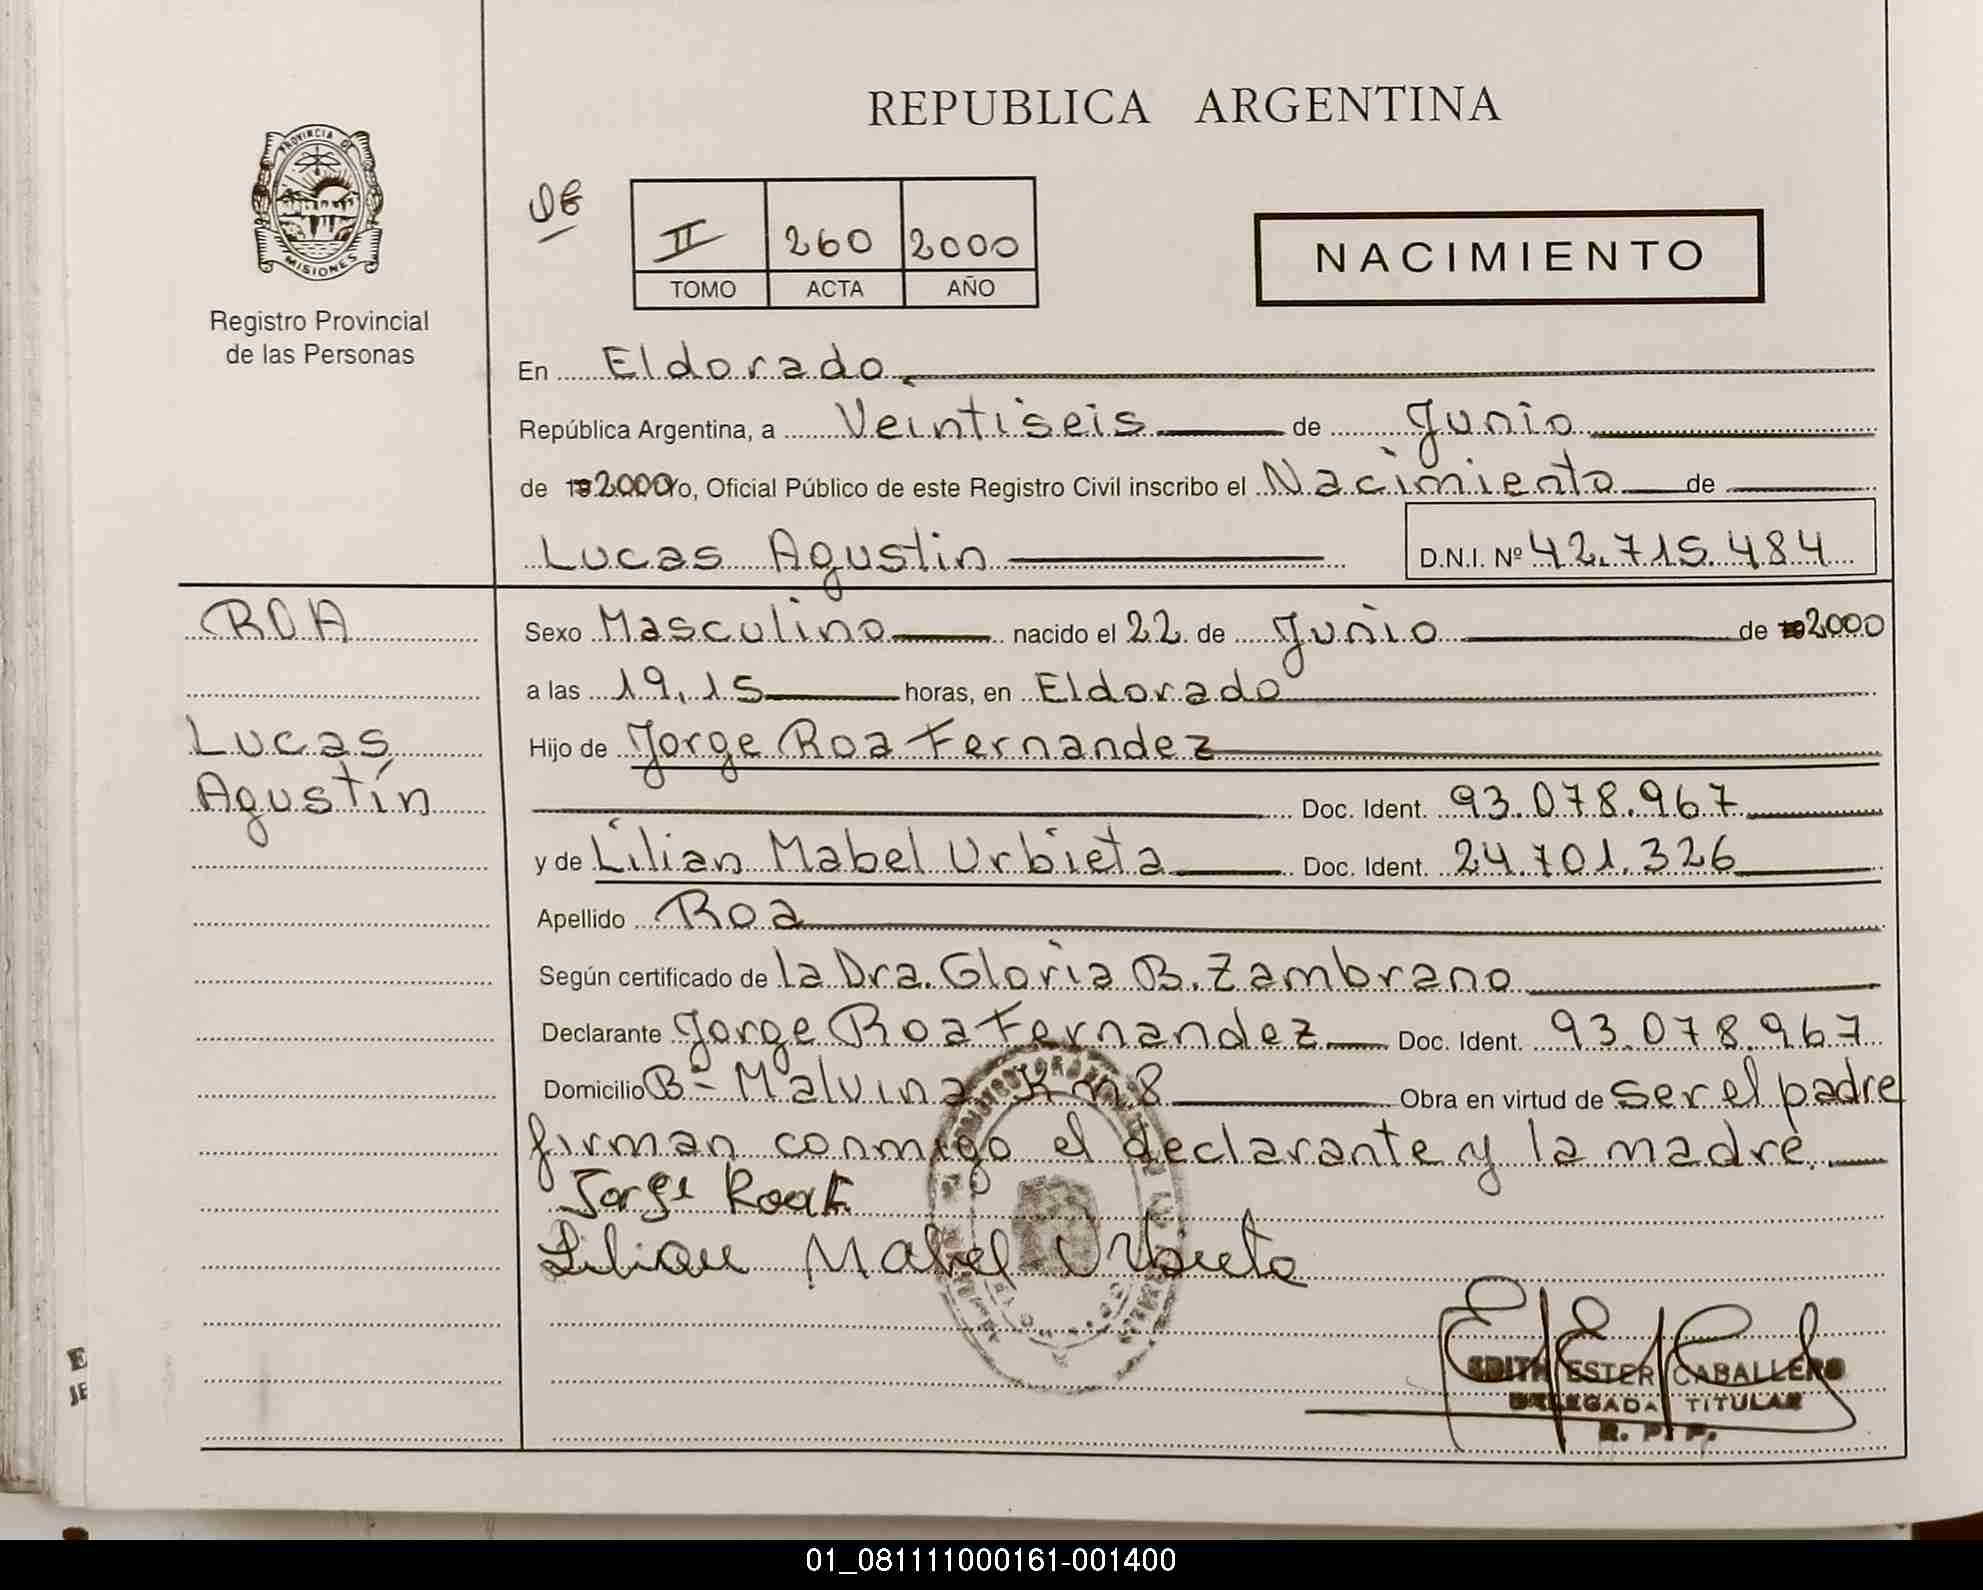 REPUBLICA ARGENTINA
PROVINCIA DE
MISIONES
Registro Provincial
de las Personas
II 260 2000
TOMO ACTA AÑO
NACIMIENTO
En Eldorado
República Argentina, a Veintiseis de Junio
de 2000 Yo, Oficial Público de este Registro Civil inscribo el Nacimiento de
Lucas Agustin D.N.I. Nº 42.715.484
ROA
Lucas
Agustín
Sexo Masculino nacido el 22 de Junio de 2000
a las 19,15 horas, en Eldorado
Hijo de Jorge Roa Fernandez
Doc. Ident. 93.078.967
y de Lilian Mabel Urbieta Doc. Ident. 24.701.326
Apellido Roa
Según certificado de la Dra. Gloria B. Zambrano
Declarante Jorge Roa Fernandez Doc. Ident. 93.078.967
Domicilio B- Malvina Km 8 Obra en virtud de ser el padre
firman conmigo el declarante y la madre.
Jorge Roa F.
Lilian Mabel Urbieta
EDITH ESTER CABALLERO
DELEGADA TITULAR
R. P. P.
01_081111000161-001400